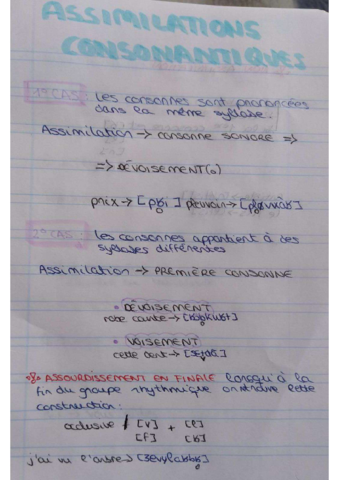 ASSIMILATIONS
CONSONANTIQUES
1º CAS: Les consonnes sont prononcées
dans la même syllabe.
Assimilation → consonne SONORE =>
=> DÉVOISEMENT(o)
prix → [pʁ̥i]
2º CAS: Les consonnes appartient à des
syllabes différentes
Assimilation → PREMIÈRE CONSONNE
• DÉVOISEMENT
robe courte →
• VOISEMENT
ASSOURDISSEMENT EN FINALE lorsqu'à la
fin du groupe rythmique on trouve cette
construction:
occlusive / [v] + [l]
[f] [ʁ]
j'ai vu l'arbre →